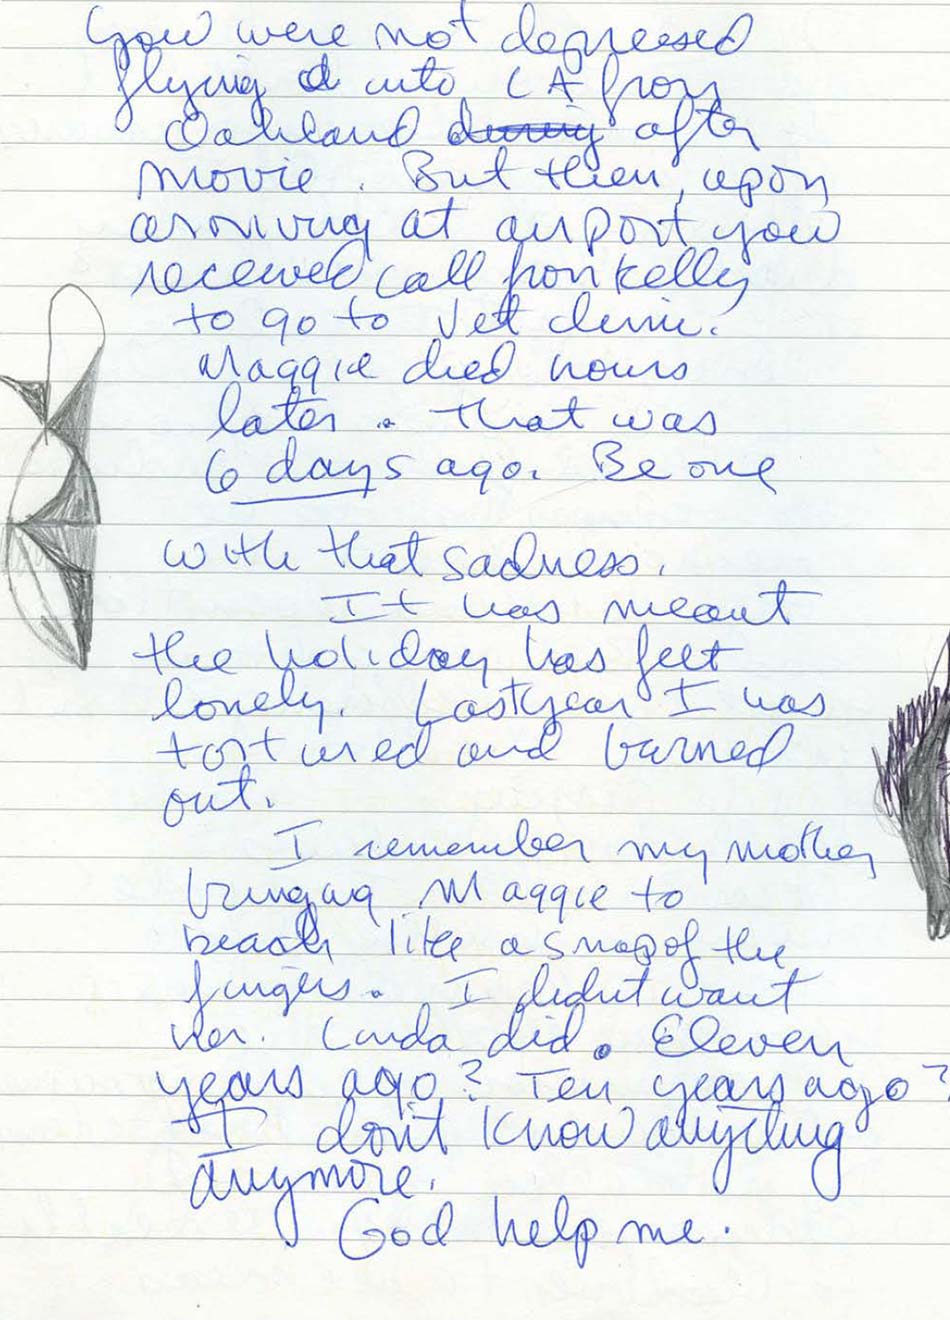 You were not depressed
flying into LA from
Oakland during after
movie. But then, upon
arriving at airport you
received call from Kelly
to go to Vet clinic.
Maggie died hours
later. That was
6 days ago. Be one
with that sadness.
It has meant
the holiday has felt
lonely. Last year I was
tortured and burned
out.
I remember my mother
bringing Maggie to
beach like a snap of the
fingers. I didn't want
her. Linda did. Eleven
years ago? Ten years ago?
I don't know anything
anymore.
God help me.